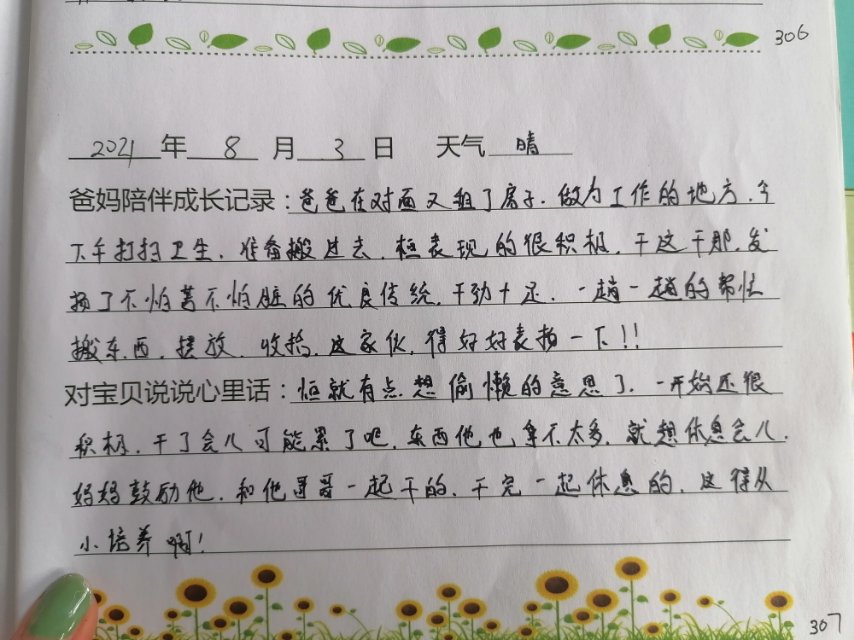 306
2021年 8 月 3 日 天气 晴
爸妈陪伴成长记录：爸爸在对面又租了房子.做为工作的地方.今
下午打扫卫生.准备搬过去.桓表现的很积极.干这干那.发
扬了不怕苦不怕脏的优良传统.干劲十足.一趟一趟的帮忙
搬东西.摆放.收拾.这家伙.得好好表扬一下!!
对宝贝说说心里话：恒就有点想偷懒的意思了.一开始还很
积极.干了会儿可能累了吧.东西他也拿不太多.就想休息会儿.
妈妈鼓励他.和他哥哥一起干的.干完一起休息的.这得从
小培养啊!
307